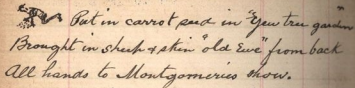 Put in carrot seed in "Yew tree garden"
Brought in sheep & skin "old Ewe" from back
All hands to Montgomeries show.